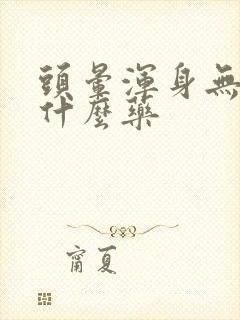 頭暈渾身無
什麼藥
甯夏